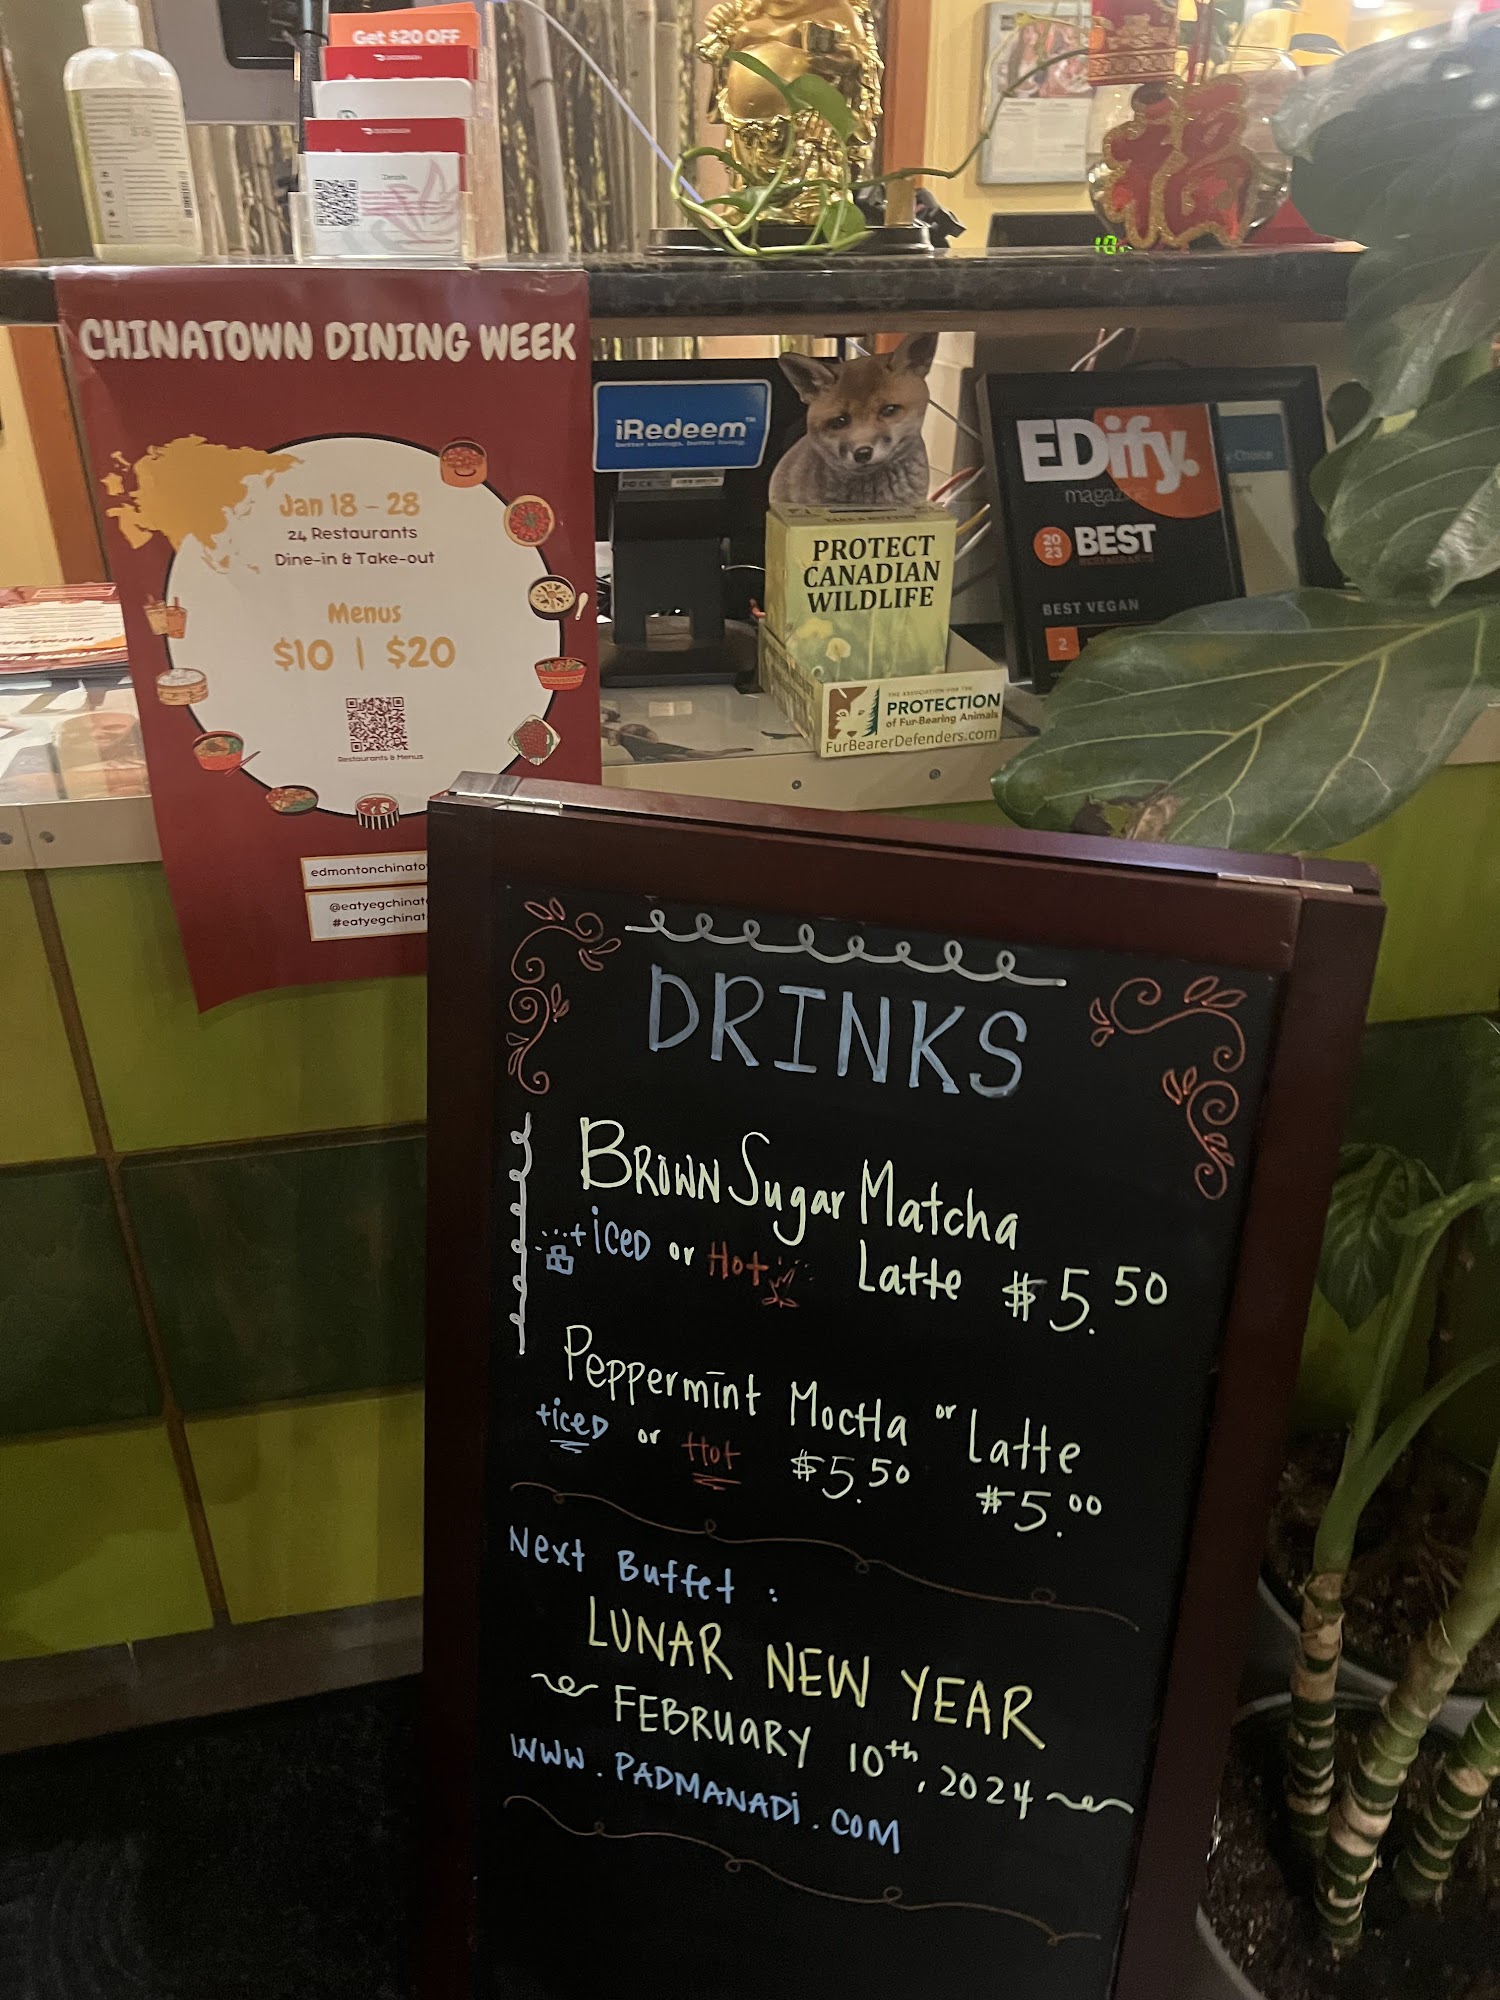 Get $20 OFF
DOORDASH
DOORDASH
福
CHINATOWN DINING WEEK
Jan 18 - 28
24 Restaurants
Dine-in & Take-out
Menus
$10 | $20
Restaurants & Menus
edmontonchinato
@eatyegchinat
#eatyegchinat
iRedeem™
better savings. better living.
PROTECT
CANADIAN
WILDLIFE
THE ASSOCIATION FOR THE
PROTECTION
of Fur-Bearing Animals
FurBearerDefenders.com
EDify.
magazine
2023 BEST
RESTAURANTS
BEST VEGAN
2
Choice
PADMANA
DRINKS
BROWN Sugar Matcha
+iCED or Hot Latte $5.50
Peppermint MocHa or Latte
+iceD or Hot $5.50 $5.00
Next Buffet :
LUNAR NEW YEAR
FEBRUARY 10th, 2024
WWW.PADMANADi.COM